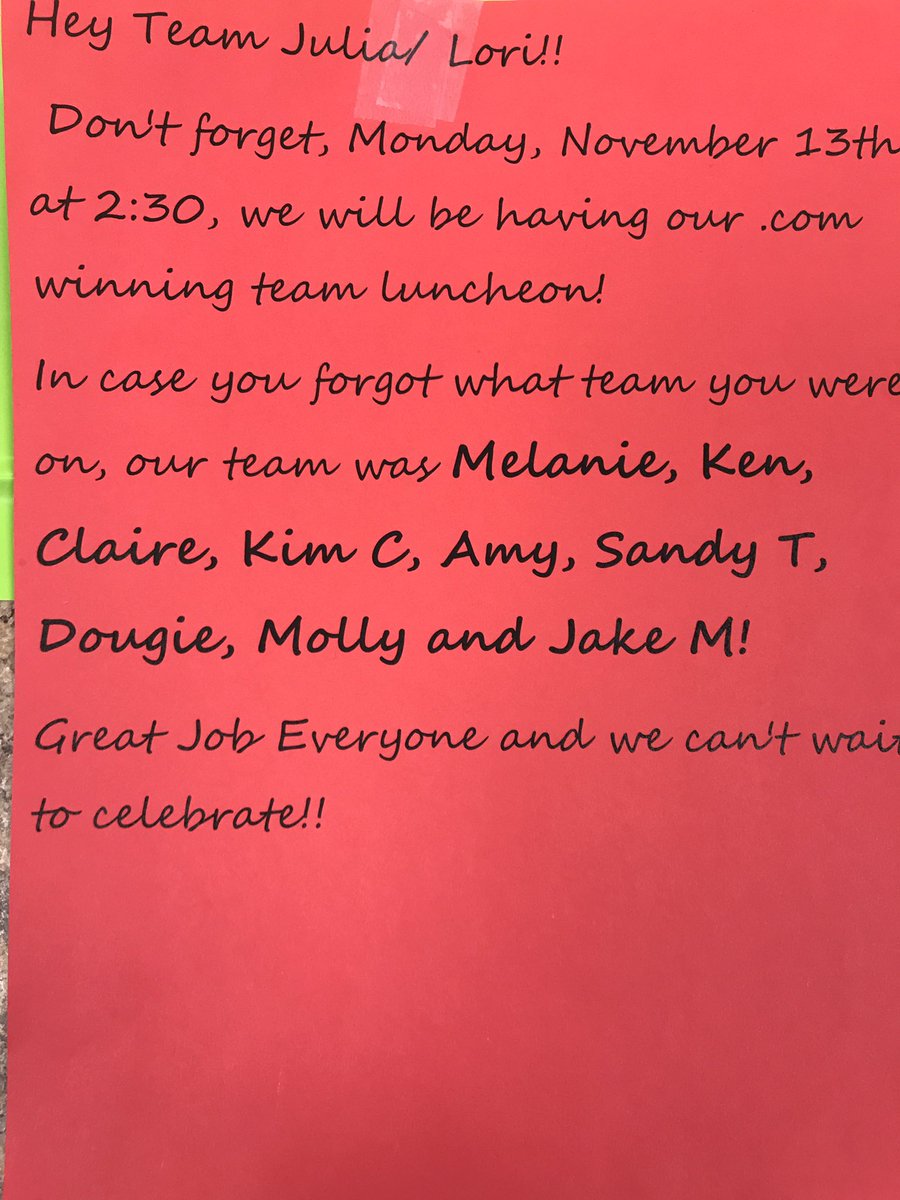 Hey Team Julia/ Lori!!
Don't forget, Monday, November 13th
at 2:30, we will be having our .com
winning team luncheon!
In case you forgot what team you were
on, our team was Melanie, Ken,
Claire, Kim C, Amy, Sandy T,
Dougie, Molly and Jake M!
Great Job Everyone and we can't wait
to celebrate!!